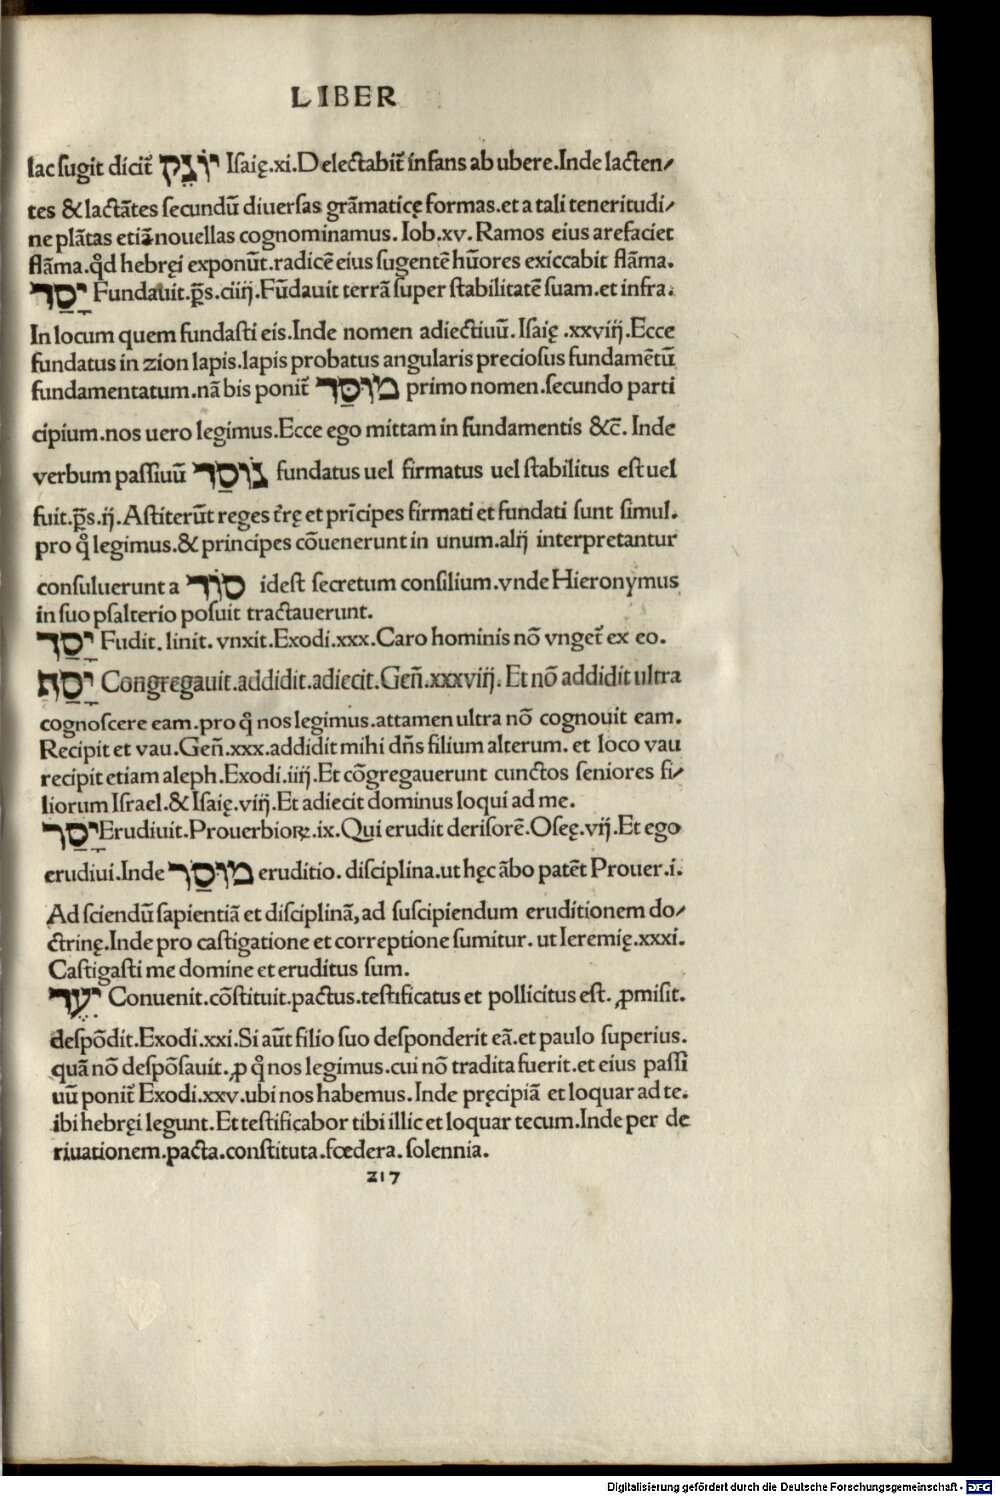 LIBER
lac sugit dicit᷑ יוֹנֵק Isaię.xi.Delectabit᷑ infans ab ubere.Inde lacten⸗
tes & lactātes secundū diuersas grāmaticę formas.et a tali teneritudi⸗
ne plātas etiā nouellas cognominamus. Iob.xv. Ramos eius arefaciet
flāma.qđ hebręi exponūt.radicē eius sugentē hūores exiccabit flāma.
יָסַד Fundauit.p̄s.ciiij.Fūdauit terrā super stabilitatē suam.et infra.
In locum quem fundasti eis.Inde nomen adiectiuū. Isaię .xxviij.Ecce
fundatus in zion lapis.lapis probatus angularis preciosus fundamētū
fundamentatum.nā bis ponit᷑ מוּסַד primo nomen.secundo parti
cipium.nos uero legimus.Ecce ego mittam in fundamentis &c̄. Inde
verbum passiuū נוֹסַד fundatus uel firmatus uel stabilitus est uel
fuit.p̄s.ij.Astiterūt reges t̄rę et prīcipes firmati et fundati sunt simul.
pro q̊ legimus.& principes cōuenerunt in unum.alij interpretantur
consuluerunt a סוֹד idest secretum consilium.vnde Hieronymus
in suo psalterio posuit tractauerunt.
יָסַד Fudit. linit. vnxit.Exodi.xxx.Caro hominis nō vnget᷑ ex eo.
יָסַף Congregauit.addidit.adiecit.Geñ.xxxviij. Et nō addidit ultra
cognoscere eam.pro q̊ nos legimus.attamen ultra nō cognouit eam.
Recipit et vau.Geñ.xxx.addidit mihi dñs filium alterum. et loco vau
recipit etiam aleph.Exodi.iiij.Et cōgregauerunt cunctos seniores fi⸗
liorum Israel.& Isaię.viij.Et adiecit dominus loqui ad me.
יָסַר Erudiuit.Prouerbioꝝ.ix.Qui erudit derisorē.Oseę.vij.Et ego
erudiui.Inde מוּסַר eruditio. disciplina.ut hęc ābo patēt Prouer.i.
Ad sciendū sapientiā et disciplinā,ad suscipiendum eruditionem do⸗
ctrinę.Inde pro castigatione et correptione sumitur. ut Ieremię.xxxi.
Castigasti me domine et eruditus sum.
יָעַד Conuenit.cōstituit.pactus.testificatus et pollicitus est. ꝓmisit.
despōdit.Exodi.xxi.Si aūt filio suo desponderit eā.et paulo superius.
quā nō despōsauit.ꝓ q̊ nos legimus.cui nō tradita fuerit.et eius passi
uū ponit᷑ Exodi.xxv.ubi nos habemus.Inde pręcipiā et loquar ad te.
ibi hebręi legunt.Et testificabor tibi illic et loquar tecum.Inde per de
riuationem.pacta.constituta.fœdera. solennia.
217
Digitalisierung gefördert durch die Deutsche Forschungsgemeinschaft - DFG